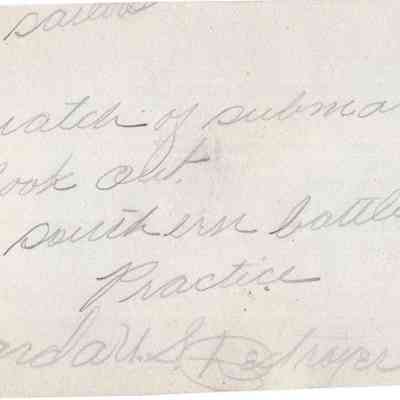 sailors
watch of subma
look out.
southern battle
Practice
U.S. Destroyer